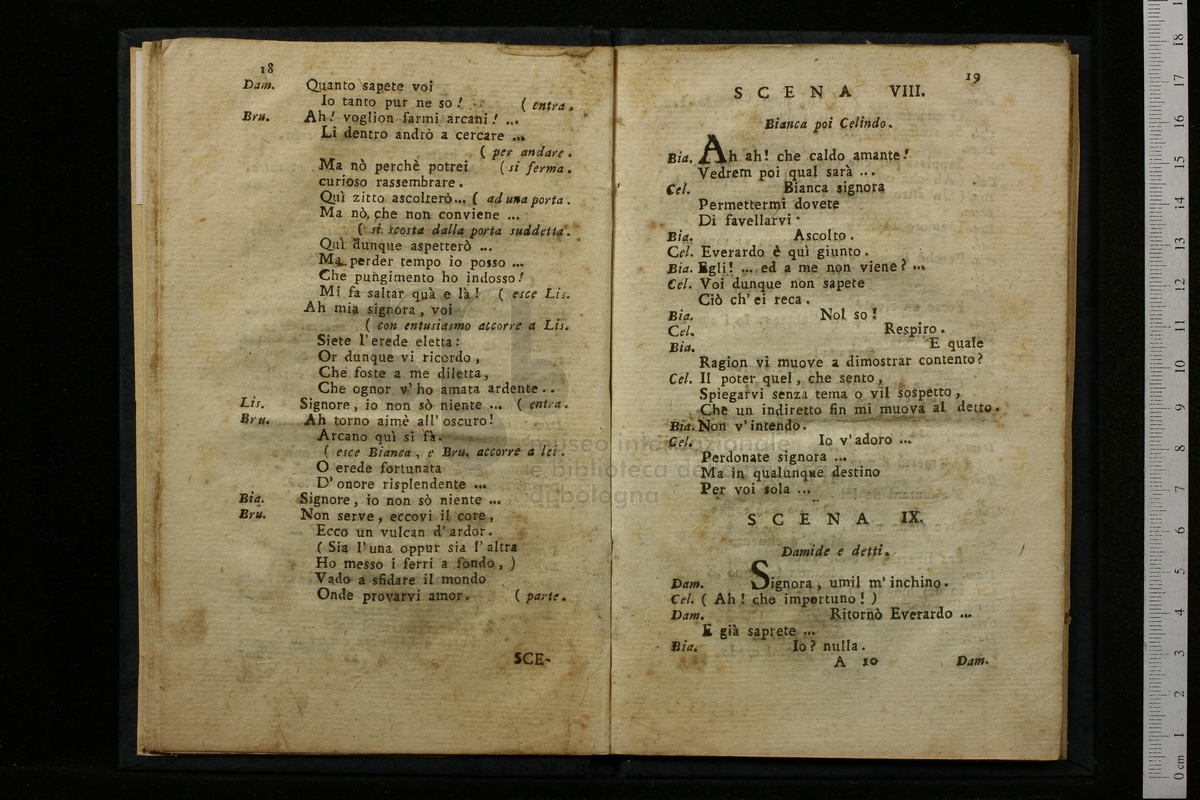 18
Dam. Quanto sapete voi
Io tanto pur ne so! ( entra.
Bru. Ah! voglion farmi arcani! ...
Li dentro andrò a cercare ...
( per andare.
Ma nò perchè potrei ( si ferma.
curioso rassembrare.
Quì zitto ascolterò... ( ad una porta.
Ma nò, che non conviene ...
( si scosta dalla porta suddetta.
Quì dunque aspetterò ...
Ma perder tempo io posso ...
Che pungimento ho indosso!
Mi fa saltar quà e là! ( esce Lis.
Ah mia signora, voi
( con entusiasmo accorre a Lis.
Siete l'erede eletta:
Or dunque vi ricordo,
Che foste a me diletta,
Che ognor v'ho amata ardente..
Lis. Signore, io non sò niente ... ( entra.
Bru. Ah torno aimè all'oscuro!
Arcano quì si fà.
( esce Bianca, e Bru. accorre a lei.
O erede fortunata
D'onore risplendente ...
Bia. Signore, io non sò niente ...
Bru. Non serve, eccovi il core,
Ecco un vulcan d'ardor.
( Sia l'una oppur sia l'altra
Ho messo i ferri a fondo, )
Vado a sfidare il mondo
Onde provarvi amor. ( parte.
SCE-
19
SCENA VIII.
Bianca poi Celindo.
Bia. Ah ah! che caldo amante!
Vedrem poi qual sarà ...
Cel. Bianca signora
Permettermi dovete
Di favellarvi.
Bia. Ascolto.
Cel. Everardo è quì giunto.
Bia. Egli! ... ed a me non viene? ...
Cel. Voi dunque non sapete
Ciò ch'ei reca.
Bia. Nol so!
Cel. Respiro.
Bia. E quale
Ragion vi muove a dimostrar contento?
Cel. Il poter quel, che sento,
Spiegarvi senza tema o vil sospetto,
Che un indiretto fin mi muova al detto.
Bia. Non v'intendo.
Cel. Io v'adoro ...
Perdonate signora ...
Ma in qualunque destino
Per voi sola ...
SCENA IX.
Damide e detti.
Dam. Signora, umil m'inchino.
Cel. ( Ah! che importuno! )
Dam. Ritornò Everardo ...
E già saprete ...
Bia. Io? nulla.
A 10 Dam.
museo internazionale
e biblioteca de
di bologna
0 cm 1 2 3 4 5 6 7 8 9 10 11 12 13 14 15 16 17 18